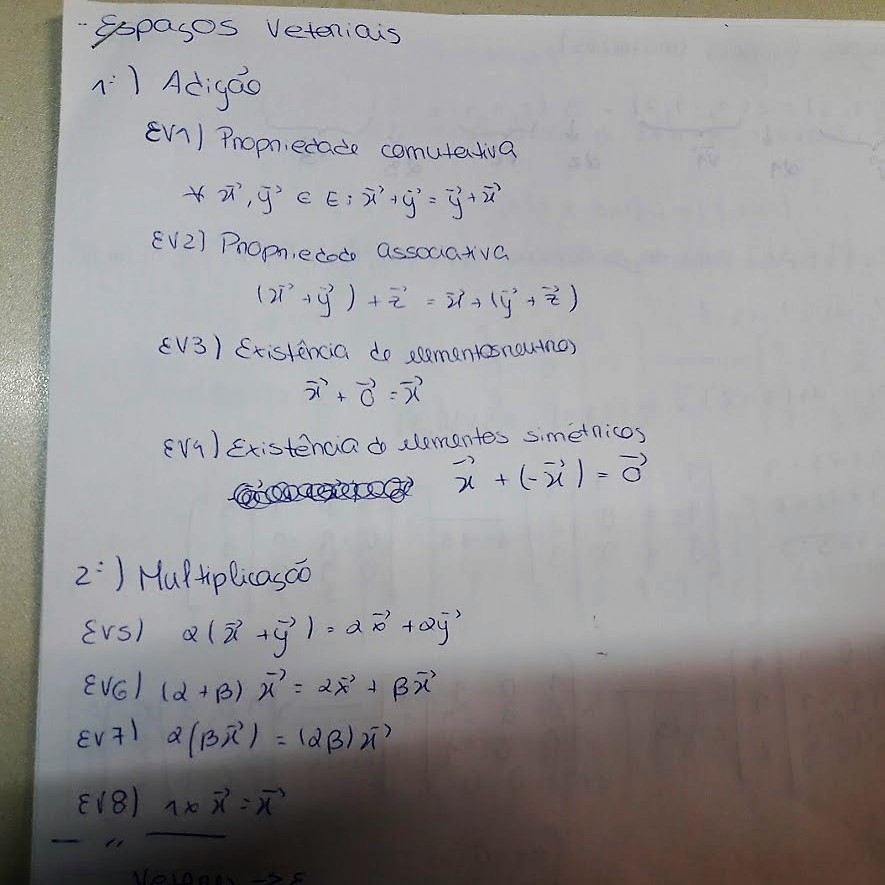 - Espaços Vetoriais
1º) Adição
EV1) Propriedade comutativa
∀ x⃗, y⃗ ∈ E : x⃗ + y⃗ = y⃗ + x⃗
EV2) Propriedade associativa
(x⃗ + y⃗) + z⃗ = x⃗ + (y⃗ + z⃗)
EV3) Existência de elementos neutros
x⃗ + 0⃗ = x⃗
EV4) Existência de elementos simétricos
x⃗ + (-x⃗) = 0⃗
2º) Multiplicação
EV5) α(x⃗ + y⃗) = αx⃗ + αy⃗
EV6) (α + β) x⃗ = αx⃗ + βx⃗
EV7) α(βx⃗) = (αβ)x⃗
EV8) 1 × x⃗ = x⃗
— " —